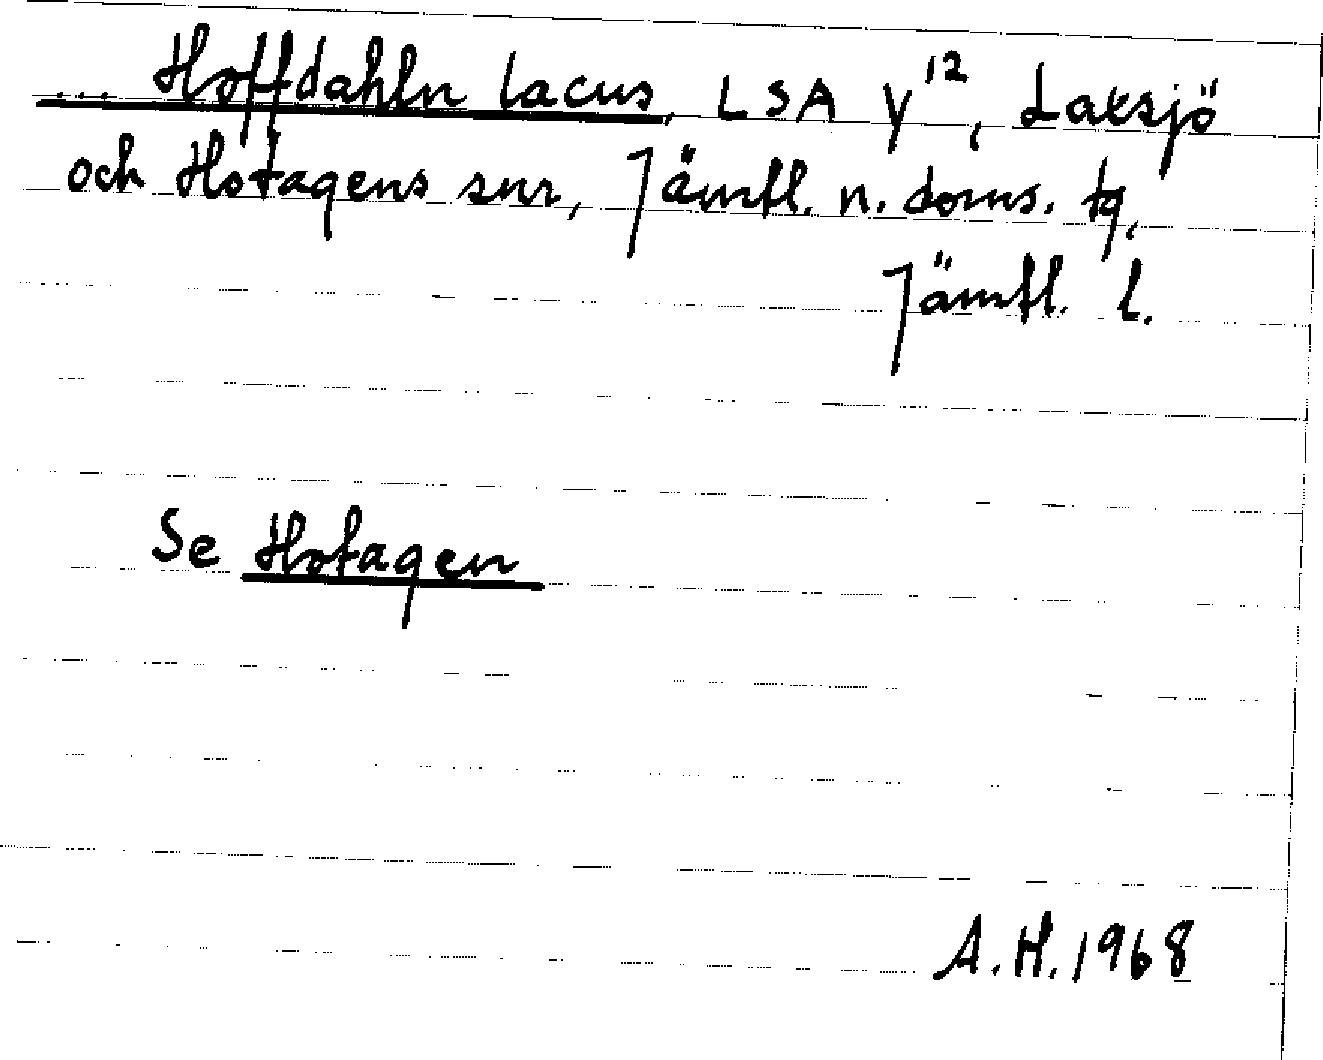 ... Hoffdahln lacus, LSA y¹², Laxsjö
och Hotagens snr, Jämtl. n. doms. tg,
Jämtl. l.
Se Hotagen
A.H. 1968